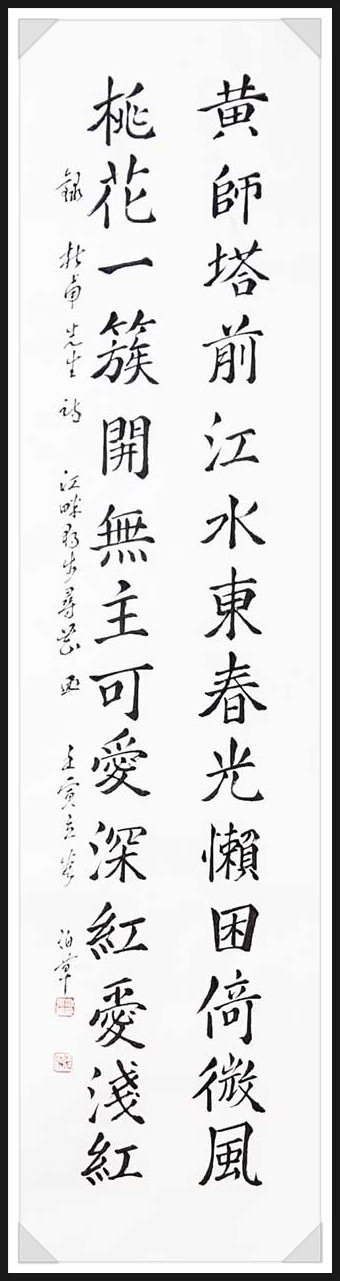 黄師塔前江水東春光懶困倚微風
桃花一簇開無主可愛深紅愛淺紅
錄 杜甫先生詩 江畔獨步尋花 壬寅立春